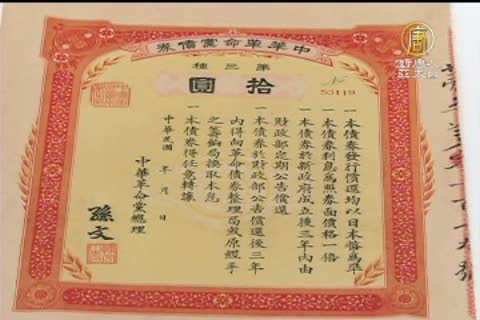 中華革命黨債券
第三種
№ 50119
拾圓
一本債券發行償還均以日本幣為準
一本債券利息為照券面價格一倍
一本債券於新政府成立後三年內由
財政部定期公告償還
一本債券於財政部公告償還後三年
內得向革命債券整理局或原經手
之籌餉局換取本息
一本債券得任意轉讓
中華民國 年 月 日
中華革命黨總理
孫文
新唐人
亞太台